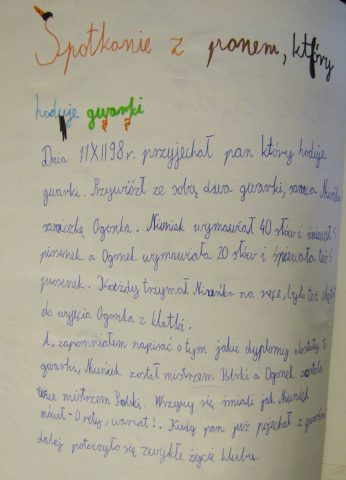 Spotkanie z panem, który
hoduje gwarki
Dnia 11 XII 98 r. przyjechał pan który hoduje
gwarki. Przywiózł ze sobą dwa gwarki, samca Niuńka
samiczkę Ogonka. Niuniek wymawiał 40 słów i śpiewał 5
piosenek a Ogonek wymawiała 20 słów i śpiewała też 5
piosenek. Każdy trzymał Niuńka na ręce, byli też chętni
do wyjęcia Ogonka z klatki.
A, zapomniałem napisać o tym jakie dyplomy dostały te
gwarki, Niuniek został mistrzem Polski a Ogonek została
mistrzem Polski. Wszyscy się śmiali jak Niuniek
mówił - O rety, wariat!. Kiedy pan już pojechał z gwarkami
dalej potoczyło się zwykłe życie klubu.